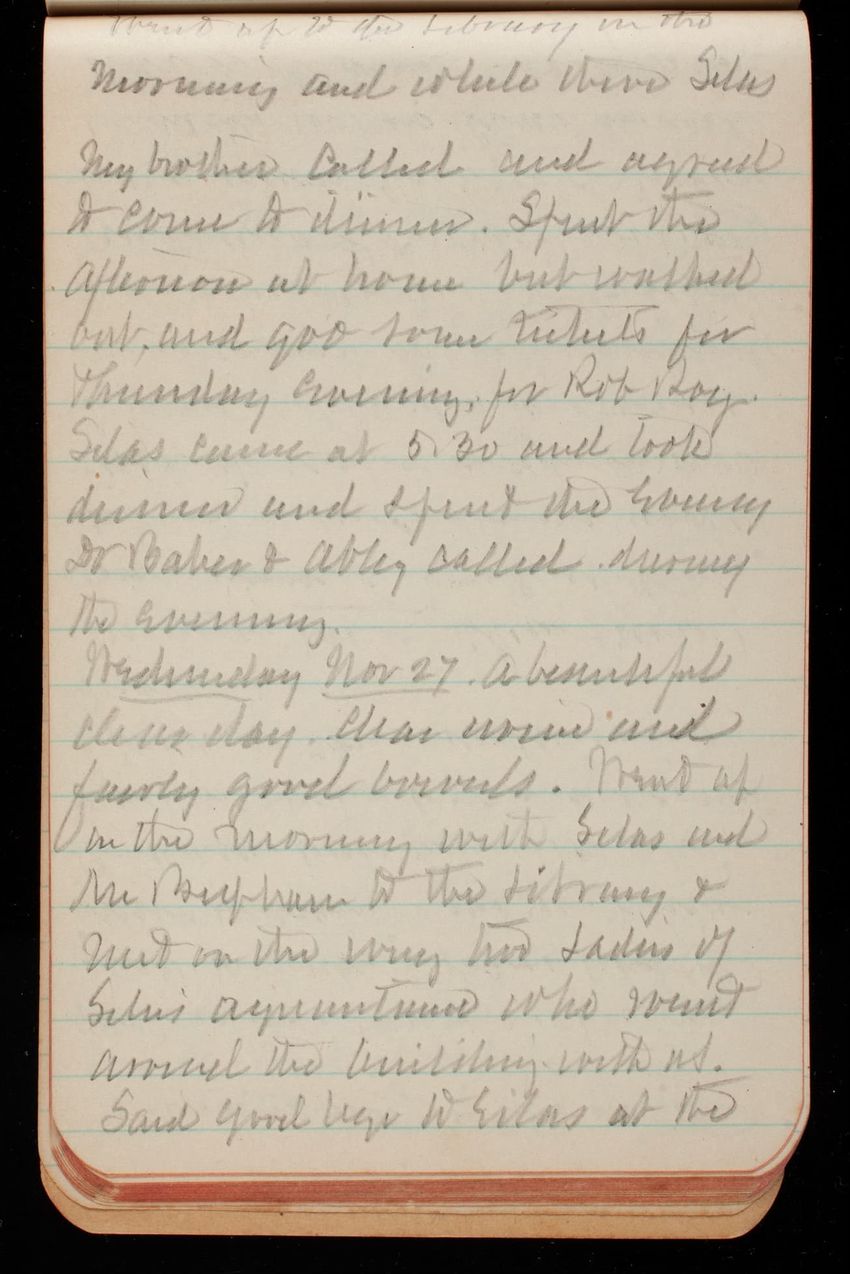 Went up to the Library in the
morning and while there Silas
My brother called and agreed
to come to dinner. Spent the
afternoon at home but walked
out, and got some tickets for
Thursday evening, for Rob Roy.
Silas came at 5.30 and took
dinner and spent the evening
Dr Baker & Abby called during
the evening.
Wednesday Nov 27. A beautiful
clear day. Clear urine and
fairly good bowels. Went up
in the morning with Silas and
to the Library &
met on the way two Ladies of
Silas acquaintance who went
around the building with us.
Said good bye to Silas at the